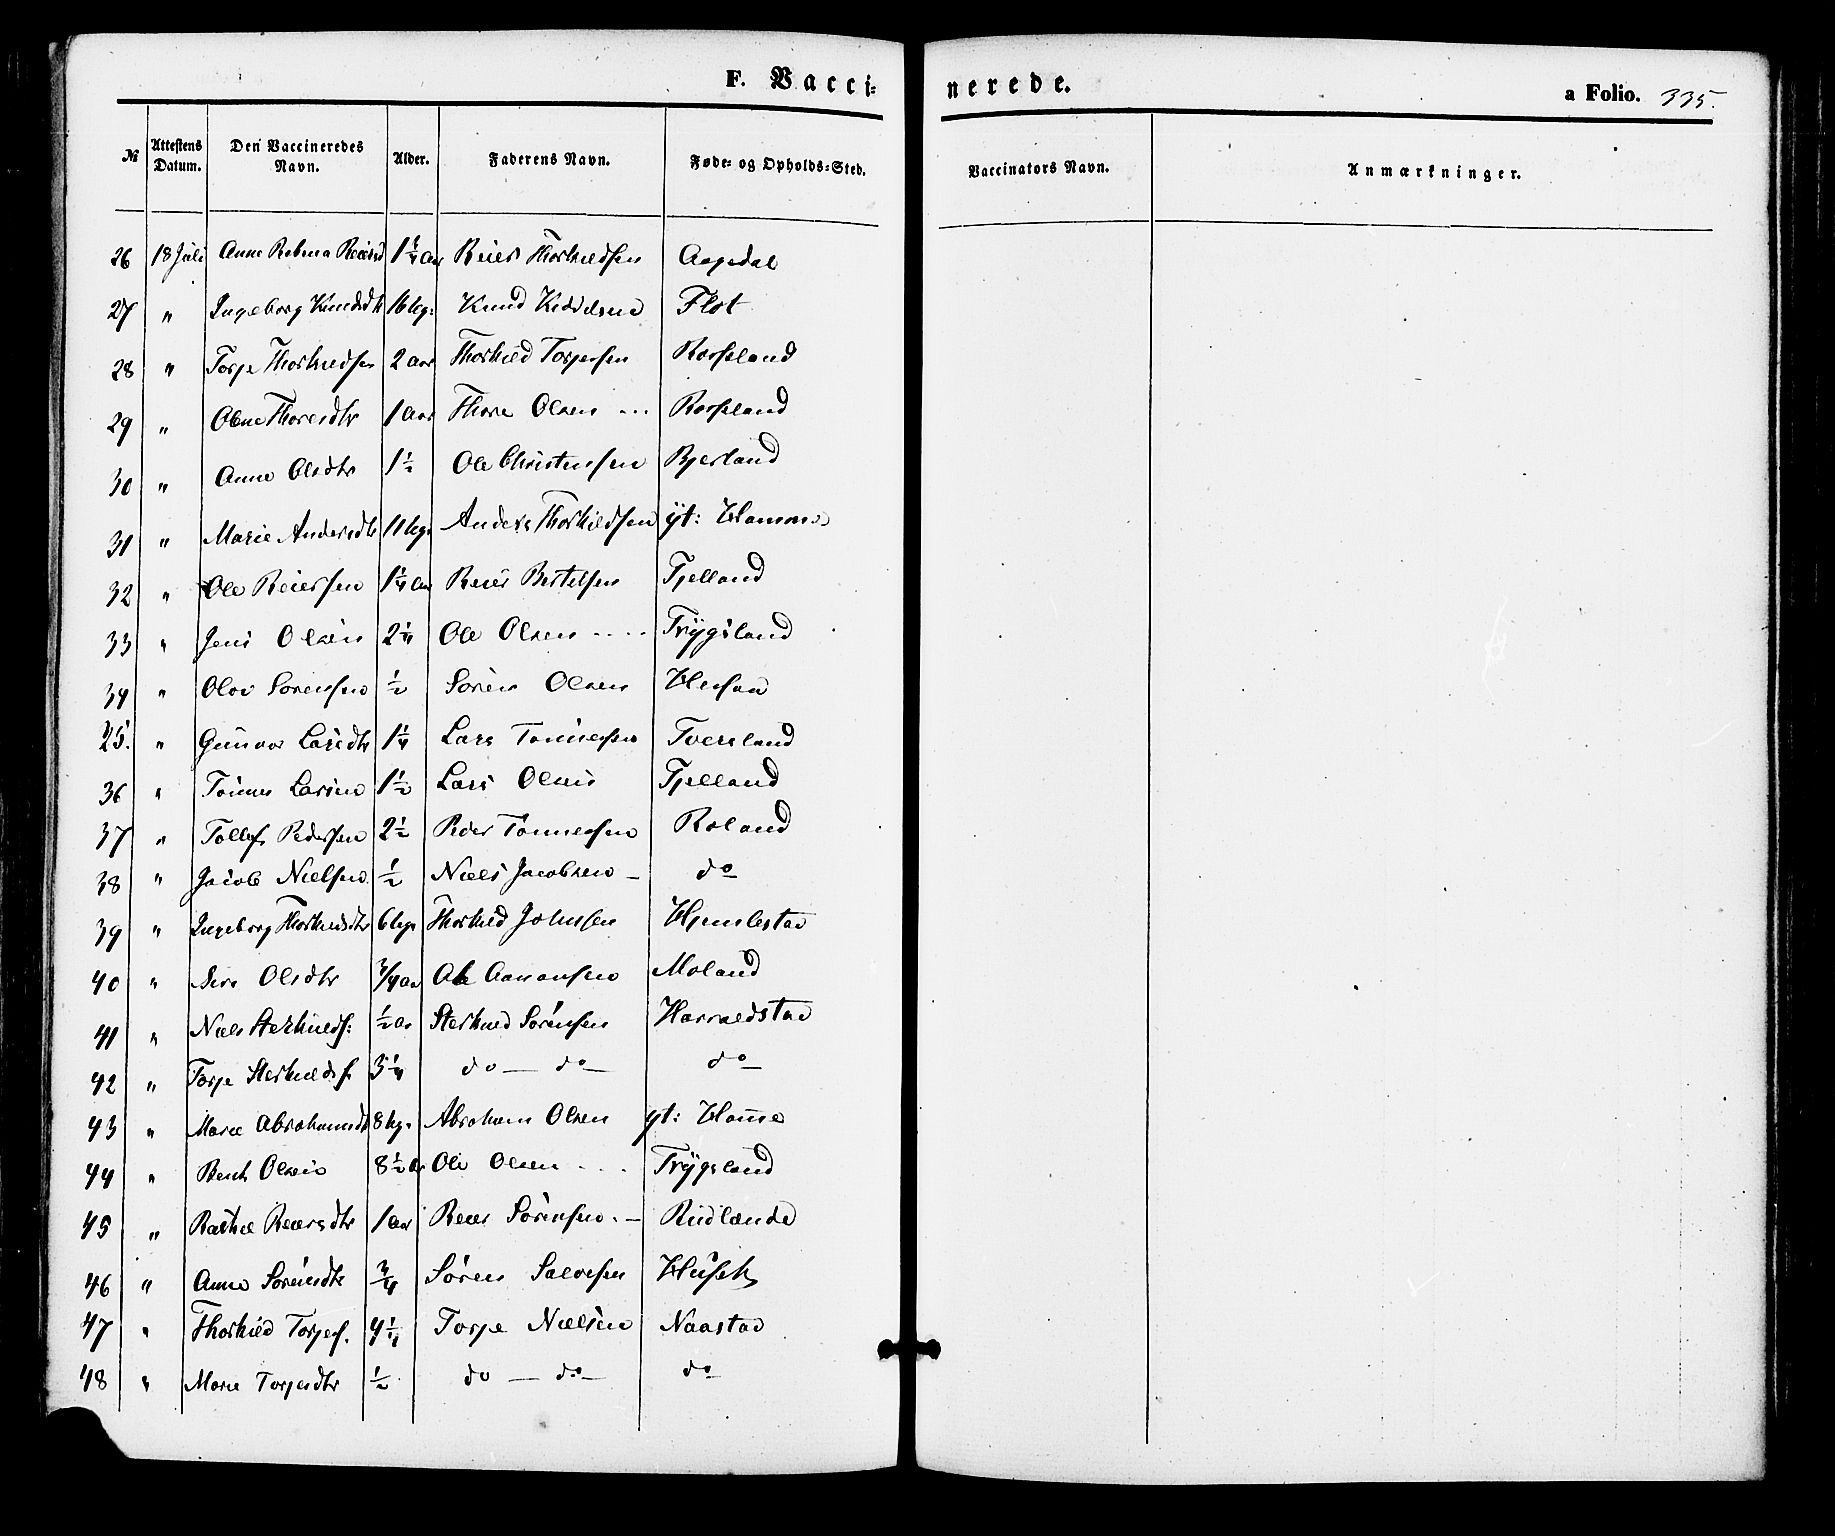 F. Vacci-
nerede.
a Folio. 335.
No Attestens Datum. Den Vaccineredes Navn. Alder. Faderens Navn. Føde- og Opholds-Sted. Vaccinators Navn. Anmærkninger.
26 18 Juli Anne Rebena 1 1/4 aar Reier Thorkildsen Aagedal
27 " Ingeborg Knudsdtr 16 Ug: Knud Kiddelsen Flot
28 " Torje Thorkildsen 2 aar Thorkild Torjersen Rosseland
29 " Thoresdtr 1 aar Thore Olsen ... Rosseland
30 " Anne Olsdtr 1 1/2 Ole Christensen Bjerland
31 " Marie Andersdtr 11 Ug. Anders Thorkildsen yt: Hamme
32 " Ole Reiersen 1 1/4 aar Reier Bertelsen Fjelland
33 " Jens Olsen 2 1/4 Ole Olsen .... Trygsland
34 " Olov Sørensen 1/2 Søren Olsen
35. " Gunvor Larsdtr 1 1/4 Lars Tønnesen Tversland
36 " Tønnes Larsen 1 1/2 Lars Olsen Fjelland
37 " Tollef Pedersen 2 1/2 Peder Tønnesen Roland
38 " Jacob Nielsen 1/2 Niels Jacobsen – do
39 " Ingeborg Thorkildsdtr 6 Ug. Thorkild Johnsen Hjemlestad
40 " Olsdtr 3/4 aar Ole Aanonsen Moland
41 " Niels Sterkilds: 1/2 ar Sterkild Sørensen Harraldstad
42 " Torje Sterkilds. 3 1/4 do — do — do
43 " Marie Abrahamsdt 8 Ug. Abraham Olsen yt: Hame
44 " Bent Olsen 8 1/2 ar Ole Olsen .... Trygsland
45 " Reiersdtr 1 aar Reier Sørensen. – Rudlande
46 " Anne Sørensdtr 3/4 Søren Salvesen
47 " Thorkild Torjes. 4 1/4 Torje Nielsen Naastad
48 " Marie Torjesdtr 1/2 do — do — do